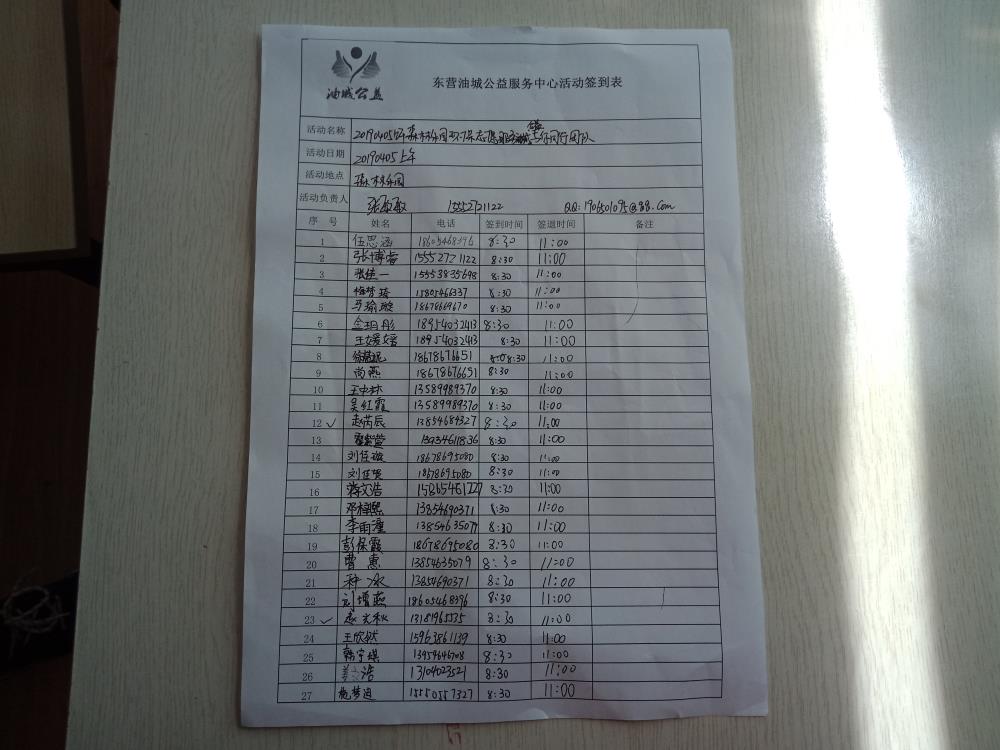 油城公益
东营油城公益服务中心活动签到表
活动名称 20190405上午森林乐园环保志愿服务
活动日期 20190405上午
活动地点 森林乐园
活动负责人 15552721122 QQ: 1906501095@88.Com
序 号 姓名 电话 签到时间 签退时间 备注
1 伍思涵 18605468396 8:30 11:00
2 张博睿 15552721122 8:30 11:00
3 张佳一 15553835698 8:30 11:00
4 梅梦琦 15805466337 8:30 11:00
5 马瑜璇 18678669670 8:30 11:00
6 金玥彤 18954032413 8:30 11:00
7 王媛媛 18954032413 8:30 11:00
8 18678676651 8:30 11:00
9 尚燕 18678676651 8:30 11:00
10 王中林 13589989370 8:30 11:00
11 吴红霞 13589989370 8:30 11:00
12 ✓ 赵芮辰 13854684327 8:30 11:00
13 13934611836 8:30 11:00
14 刘佳璇 18678695080 8:30 11:00
15 刘佳昊 18678695080 8:30 11:00
16 蒋文浩 15865461727 8:30 11:00
17 邓梓熙 13854690371 8:30 11:00
18 李雨潼 13854635079 8:30 11:00
19 彭保霞 18678695080 8:30 11:00
20 曹惠 13854635079 8:30 11:00
21 种冰 13854690371 8:30 11:00
22 刘增燕 18605468396 8:30 11:00
23 ✓ 赵元秋 13181965535 8:30 11:00
24 王欣然 15963861139 8:30 11:00
25 韩宇琪 13954646708 8:30 11:00
26 姜浩 13104023521 8:30 11:00
27 施梦迪 15550557327 8:30 11:00